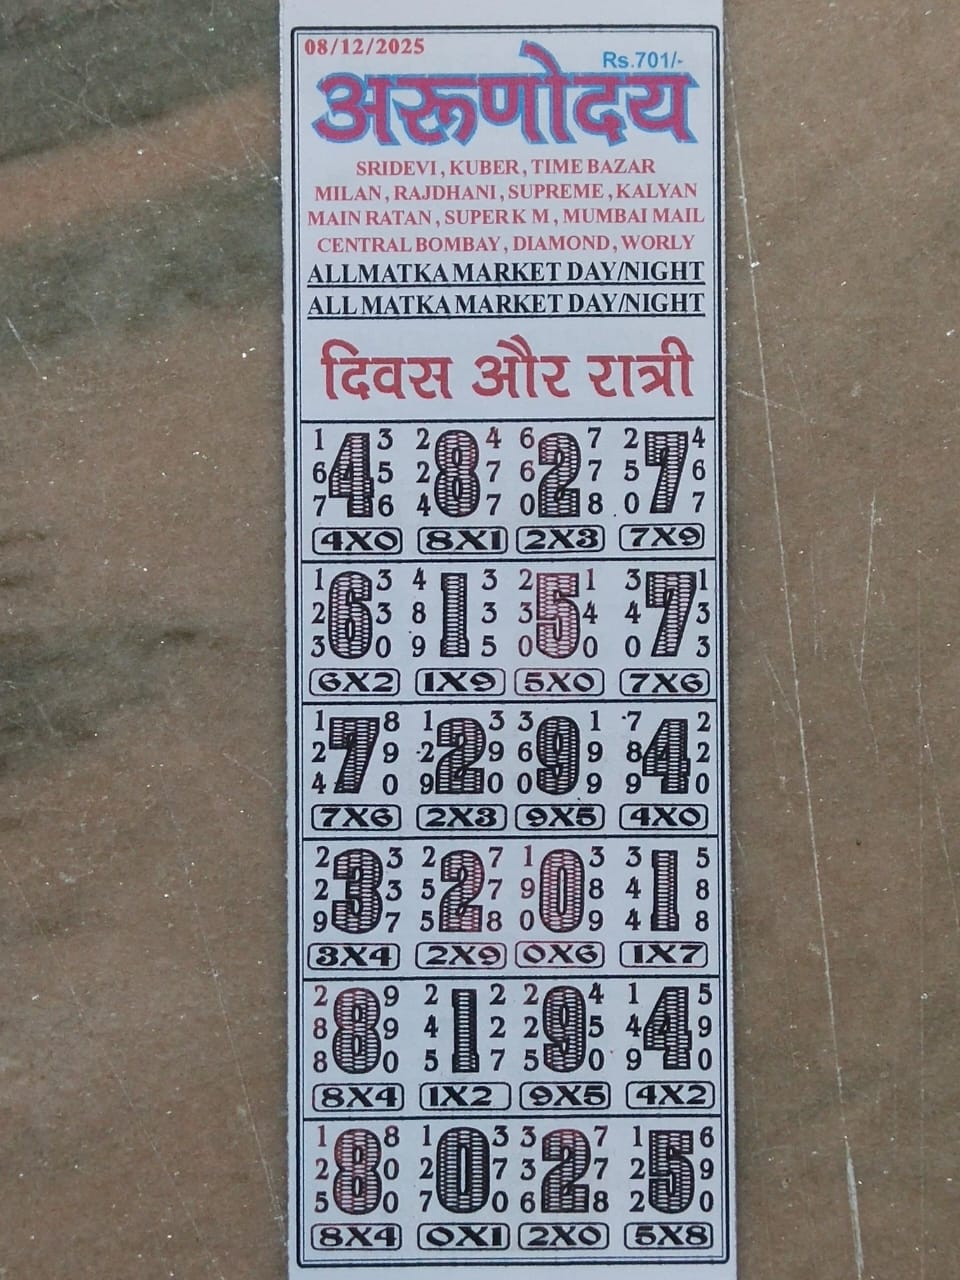 08/12/2025
Rs.701/-
अरूणोदय
SRIDEVI, KUBER, TIME BAZAR
MILAN, RAJDHANI, SUPREME, KALYAN
MAIN RATAN, SUPER K M, MUMBAI MAIL
CENTRAL BOMBAY, DIAMOND, WORLY
ALL MATKA MARKET DAY/NIGHT
ALL MATKA MARKET DAY/NIGHT
दिवस और रात्री
1 3 2 4 6 7 2 4
6 4 5 2 8 7 6 2 7 5 7 6
7 6 4 7 0 8 0 7
4X0 8X1 2X3 7X9
1 3 4 3 2 1 3 1
2 6 3 8 1 3 3 5 4 4 7 3
3 0 9 5 0 0 0 3
6X2 1X9 5X0 7X6
1 8 1 3 3 1 7 2
2 7 9 2 2 9 6 9 9 8 4 2
4 0 9 0 0 9 9 0
7X6 2X3 9X5 4X0
2 3 2 7 1 3 3 5
2 3 3 5 2 7 9 0 8 4 1 8
9 7 5 8 0 9 4 8
3X4 2X9 0X6 1X7
2 9 2 2 2 4 1 5
8 8 9 4 1 2 2 9 5 4 4 9
8 0 5 7 5 0 9 0
8X4 1X2 9X5 4X2
1 8 1 3 3 7 1 6
2 8 0 2 0 7 3 2 7 2 5 9
5 0 7 0 6 8 2 0
8X4 0X1 2X0 5X8